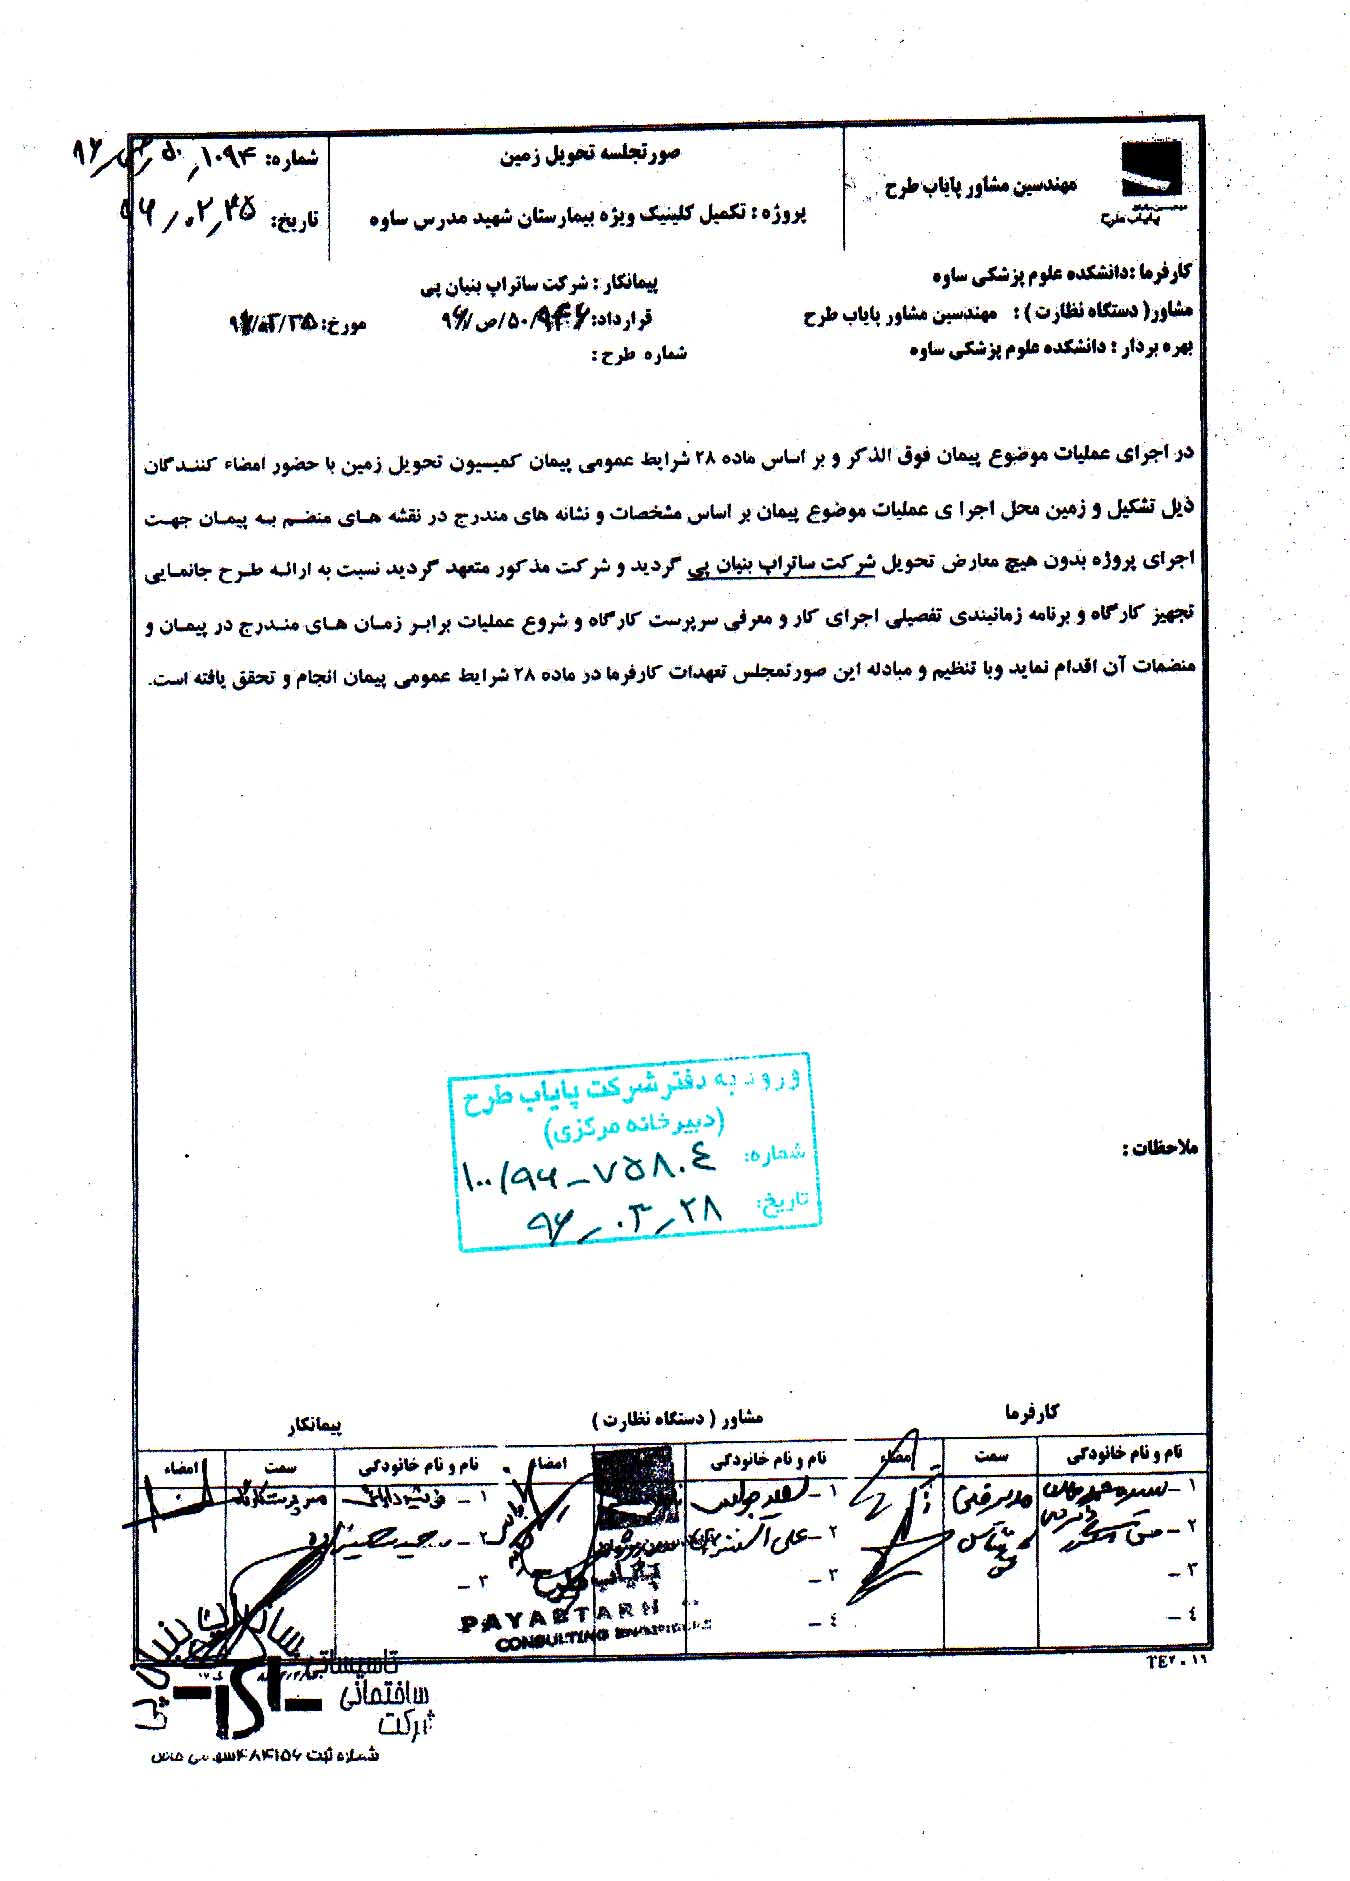 مهندسین مشاور پایاب طرح
پایاب طرح
صورتجلسه تحویل زمین
پروژه : تکمیل کلینیک ویژه بیمارستان شهید مدرس ساوه
شماره:
تاریخ:
کارفرما :دانشکده علوم پزشکی ساوه
پیمانکار : شرکت ساتراپ بنیان پی
مشاور( دستگاه نظارت ) : مهندسین مشاور پایاب طرح
قرارداد:
مورخ:
بهره بردار : دانشکده علوم پزشکی ساوه
شماره طرح :
در اجرای عملیات موضوع پیمان فوق الذکر و بر اساس ماده ۲۸ شرایط عمومی پیمان کمیسیون تحویل زمین با حضور امضاء کنندگان
ذیل تشکیل و زمین محل اجرا ی عملیات موضوع پیمان بر اساس مشخصات و نشانه های مندرج در نقشه های منضم به پیمان جهت
اجرای پروژه بدون هیچ معارض تحویل شرکت ساتراپ بنیان پی گردید و شرکت مذکور متعهد گردید نسبت به ارائه طرح جانمایی
تجهیز کارگاه و برنامه زمانبندی تفصیلی اجرای کار و معرفی سرپرست کارگاه و شروع عملیات برابر زمان های مندرج در پیمان و
منضمات آن اقدام نماید وبا تنظیم و مبادله این صورتمجلس تعهدات کارفرما در ماده ۲۸ شرایط عمومی پیمان انجام و تحقق یافته است.
ورود به دفتر شرکت پایاب طرح
(دبیرخانه مرکزی)
شماره: ۱۰۰/۹۶-۷۵۸۰٤
تاریخ: ۹۶/۰۳/۲۸
ملاحظات :
کارفرما
مشاور ( دستگاه نظارت )
پیمانکار
نام و نام خانودگی
سمت
امضاء
نام و نام خانودگی
امضاء
نام و نام خانودگی
سمت
امضاء
۱ -
۱ -
۱ -
سرپرست کارگاه
۲ -
۲ -
۲ -
۳ -
۳ -
۳ -
٤ -
٤ -
پایاب طرح
PAYABTARH
CONSULTING ENGINEERS
TE۲۰۱۶
تاسیساتی
ساختمانی
شرکت
شماره ثبت